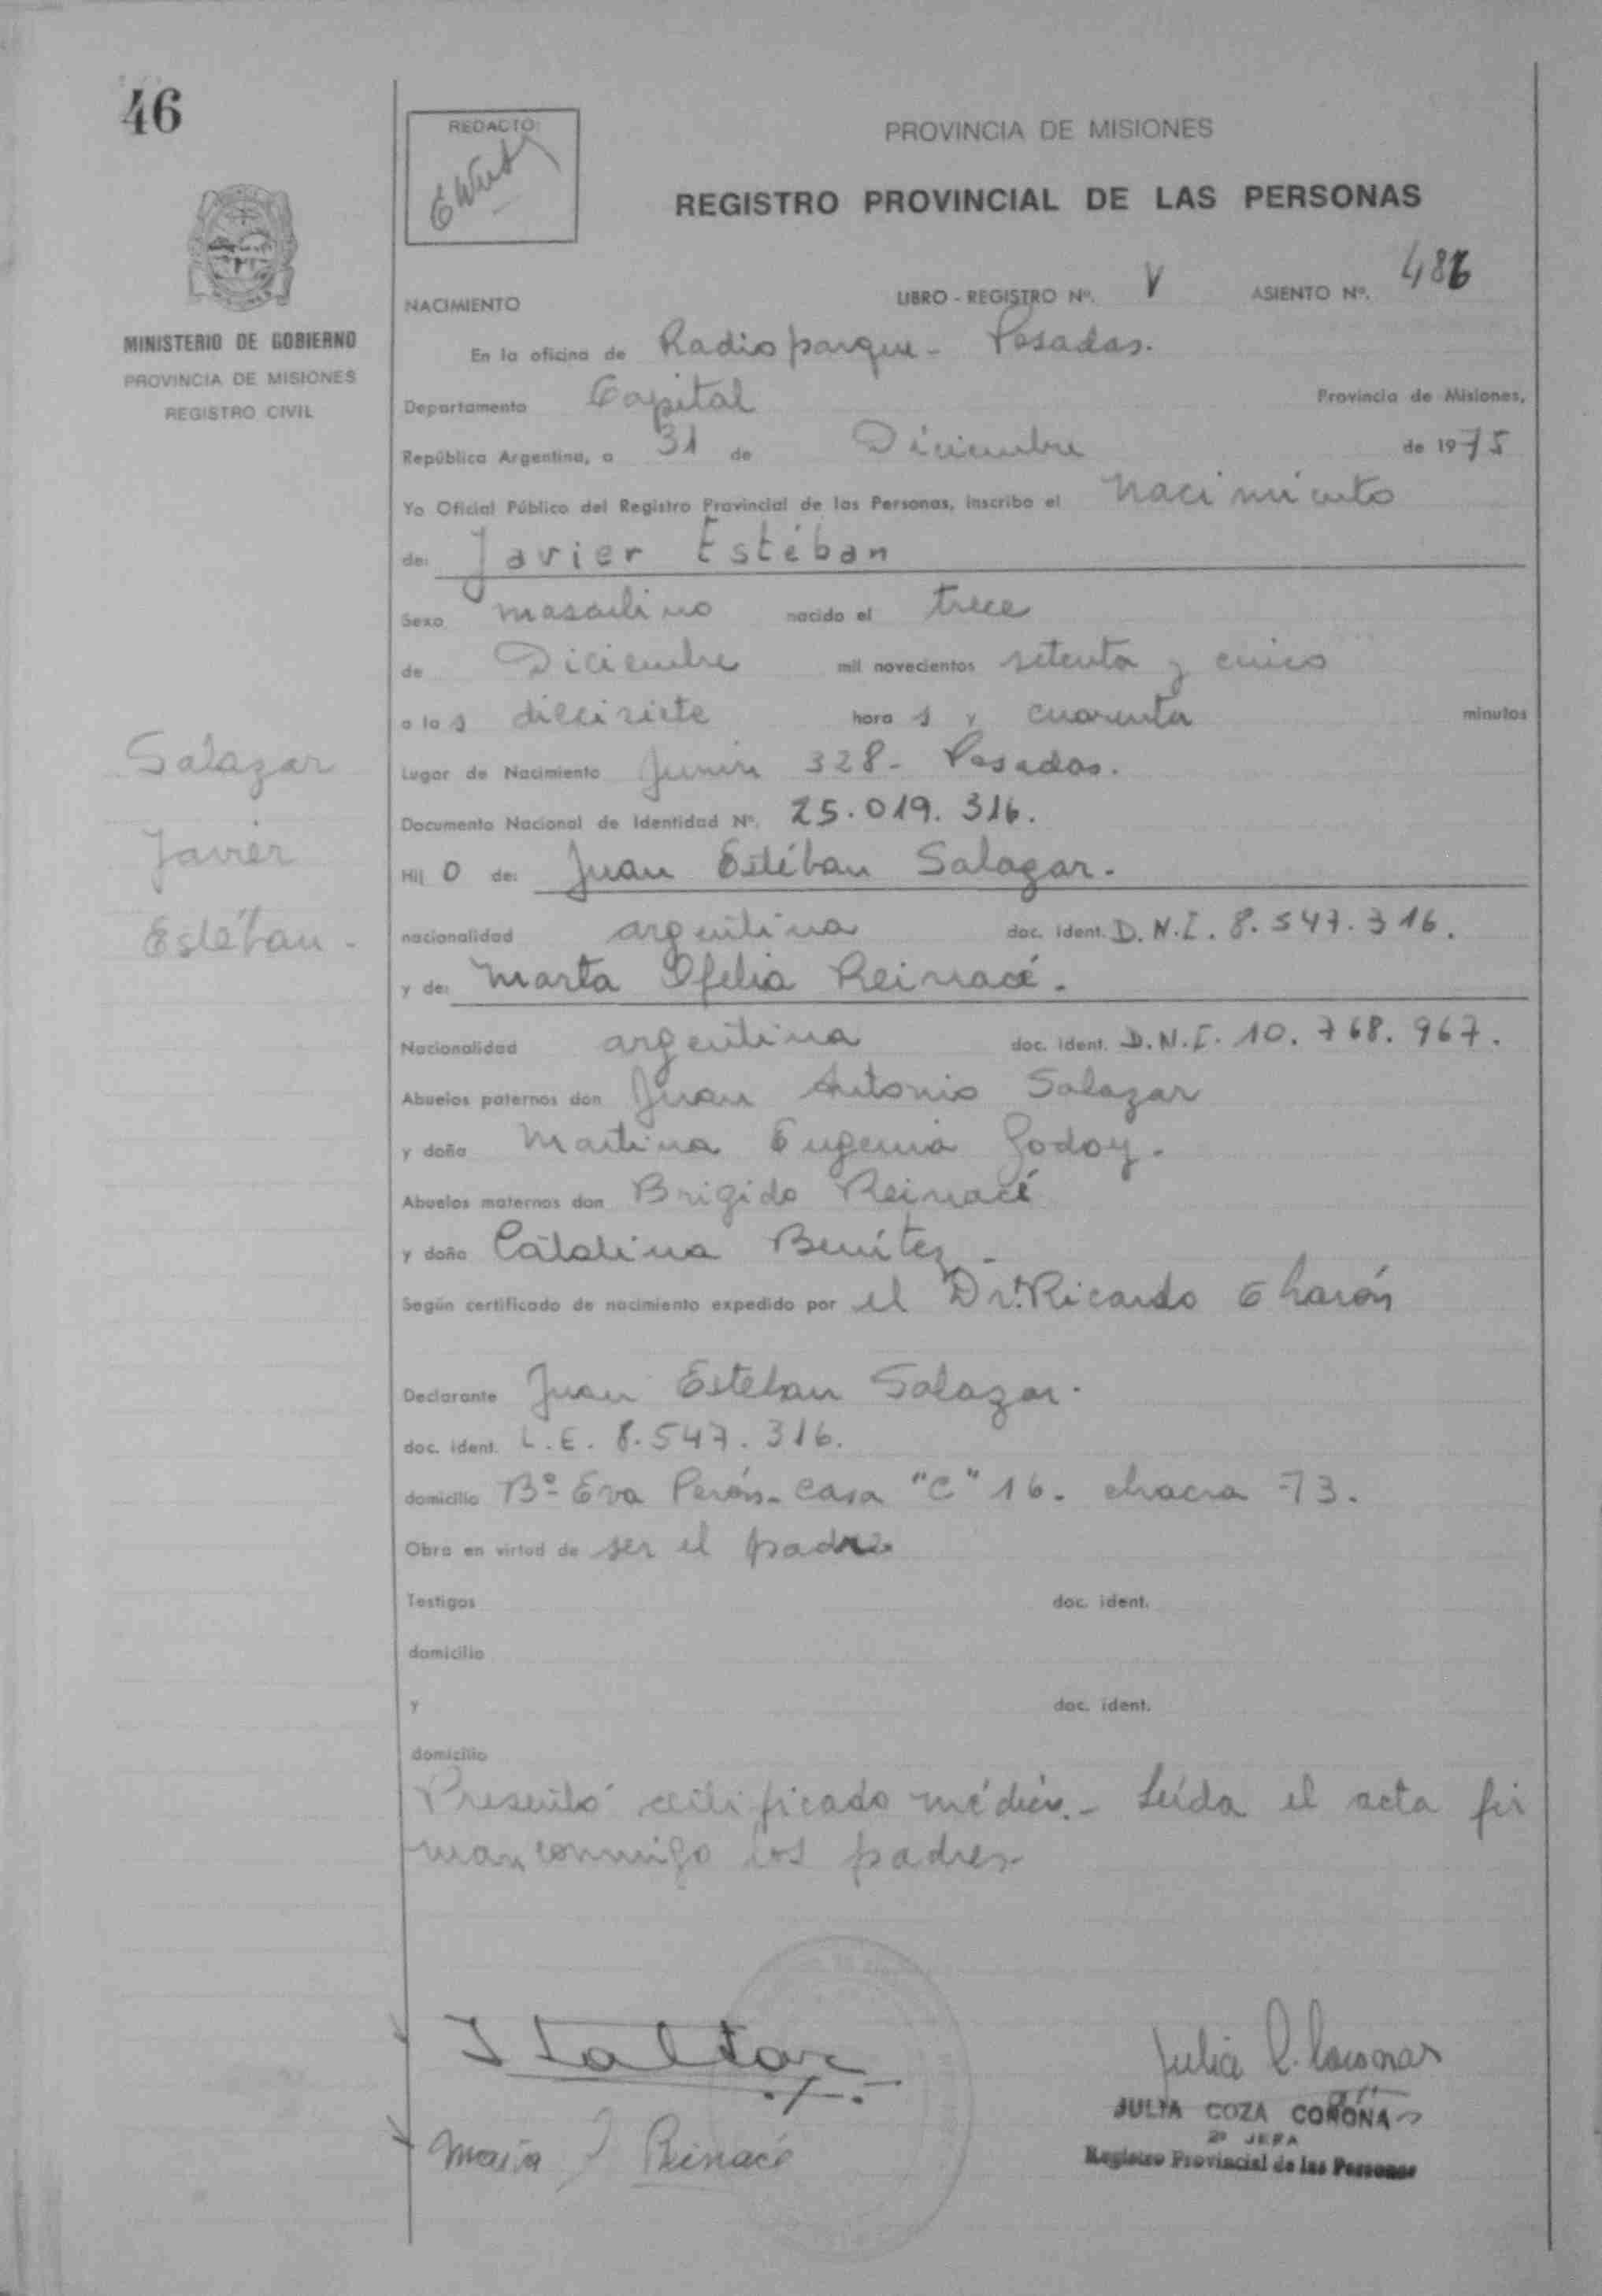 46
REDACTÓ:
PROVINCIA DE MISIONES
REGISTRO PROVINCIAL DE LAS PERSONAS
MINISTERIO DE GOBIERNO
PROVINCIA DE MISIONES
REGISTRO CIVIL
NACIMIENTO LIBRO - REGISTRO Nº. V ASIENTO Nº. 486
En la oficina de Radioparque - Posadas.
Departamento Capital Provincia de Misiones,
República Argentina, a 31 de Diciembre de 1975
Yo Oficial Público del Registro Provincial de las Personas, inscribo el Nacimiento
de: Javier Estéban
Sexo masculino nacido el trece
de Diciembre mil novecientos setenta y cinco
a las diecisiete horas y cuarenta minutos
Lugar de Nacimiento Junín 328 - Posadas.
Documento Nacional de Identidad Nº. 25.019.316.
Hijo de: Juan Estéban Salazar.
nacionalidad argentina doc. ident. D.N.I. 8.547.316.
y de: Marta Ofelia Reinacé.
Nacionalidad argentina doc. ident. D.N.I. 10.768.967.
Abuelos paternos don Juan Antonio Salazar
y doña Martina Eugenia Godoy.
Abuelos maternos don Brigido Reinacé
y doña Catalina Benítez -
Según certificado de nacimiento expedido por el Dr. Ricardo
Declarante Juan Esteban Salazar.
doc. ident. L.E. 8.547.316.
domicilio Bº Eva Perón - Casa "C" 16. chacra 73.
Obra en virtud de ser el padre
Testigos doc. ident.
domicilio
y doc. ident.
domicilio
Presentó certificado médico. - Leída el acta fir
man conmigo los padres
Salazar
Javier
Estéban -
Reinacé
JULIA COZA CORONA
2º JEFA
Registro Provincial de las Personas